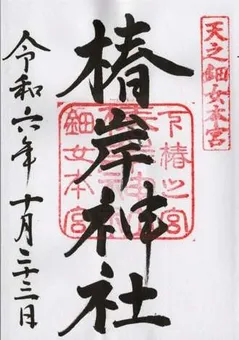 天之鈿女本宮
椿岸神社
下椿之宮
椿岸神社
鈿女本宮
令和六年十月二十三日